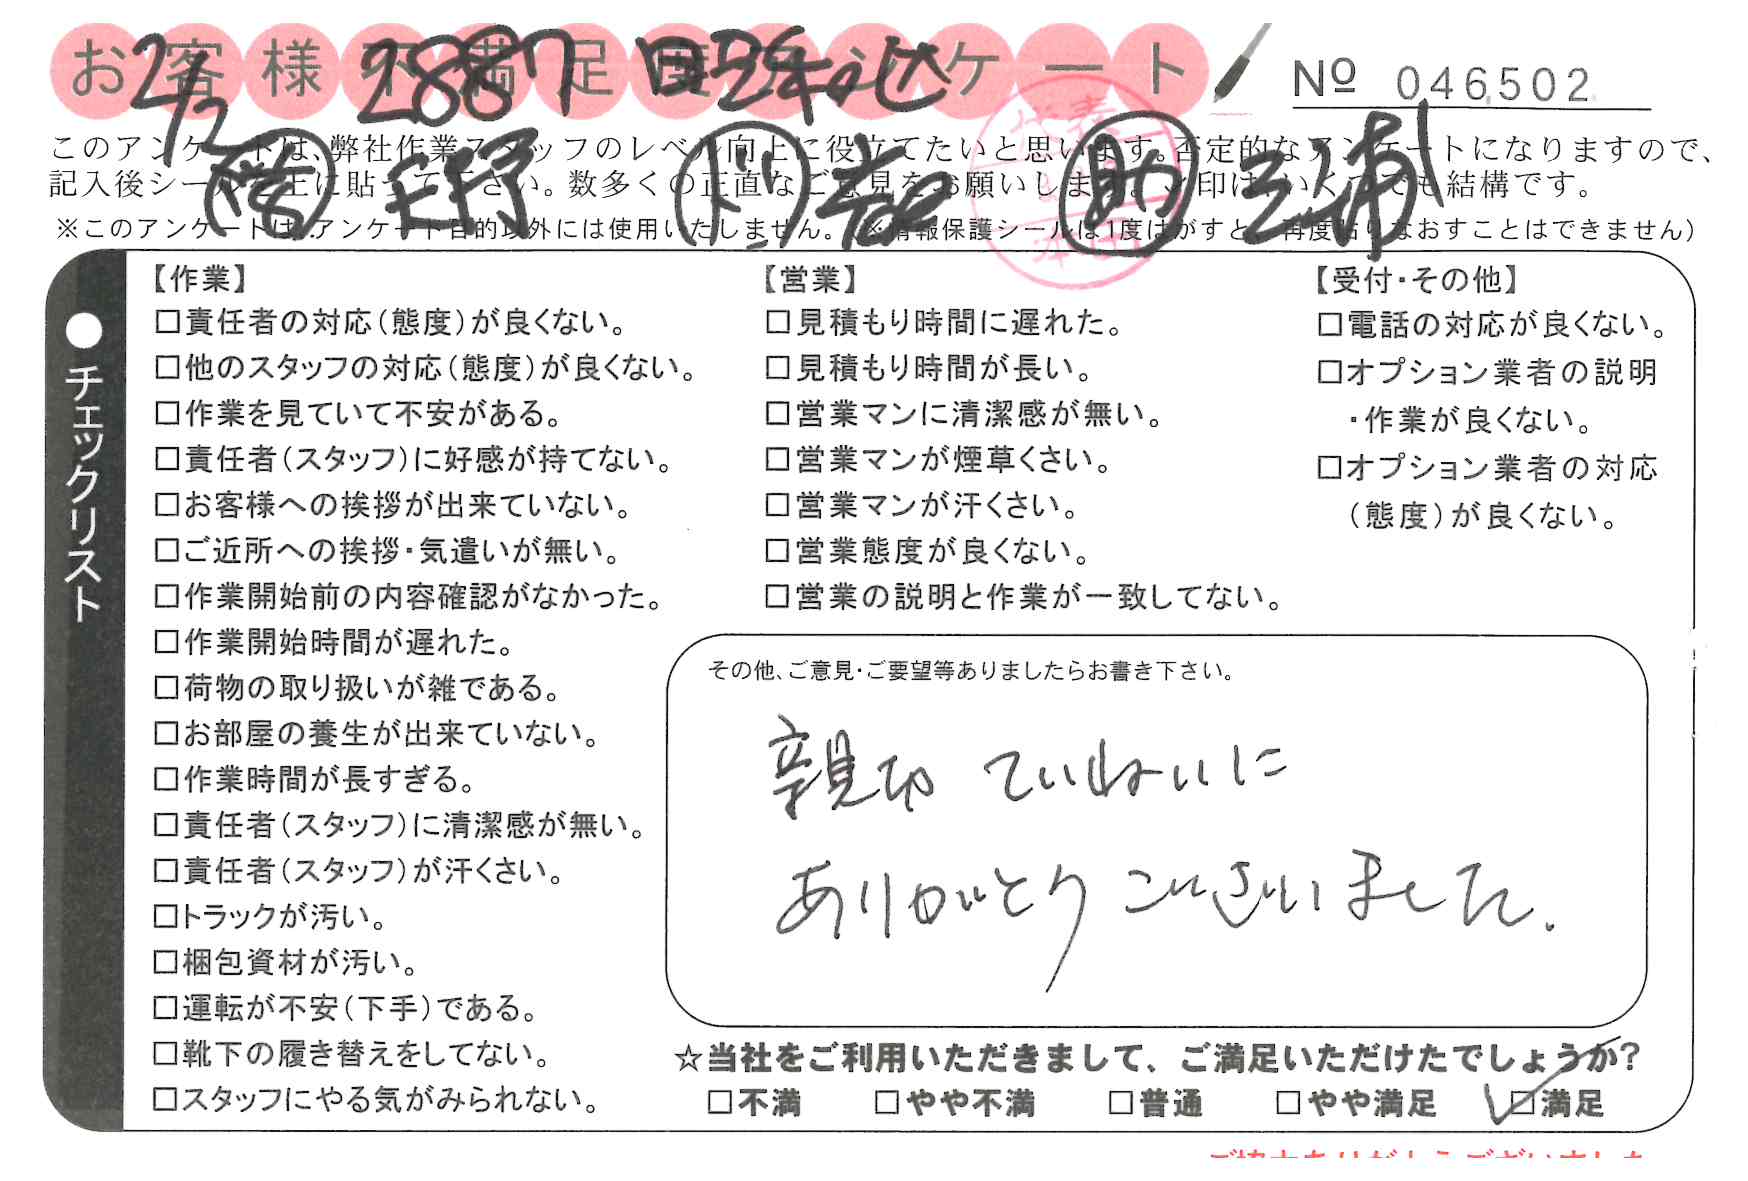 お客様不満足度アンケート
№ 046502
2/2 2887
営 天野 助 三浦
このアンケートは、弊社作業スタッフのレベル向上に役立てたいと思います。否定的なアンケートになりますので、
記入後シールを上に貼って下さい。数多くの正直なご意見をお願いします。レ印は、いくつでも結構です。
※このアンケートは、アンケート目的以外には使用いたしません。(※情報保護シールは1度はがすと、再度貼りなおすことはできません)
代表
●チェックリスト
【作業】
□責任者の対応(態度)が良くない。
□他のスタッフの対応(態度)が良くない。
□作業を見ていて不安がある。
□責任者(スタッフ)に好感が持てない。
□お客様への挨拶が出来ていない。
□ご近所への挨拶・気遣いが無い。
□作業開始前の内容確認がなかった。
□作業開始時間が遅れた。
□荷物の取り扱いが雑である。
□お部屋の養生が出来ていない。
□作業時間が長すぎる。
□責任者(スタッフ)に清潔感が無い。
□責任者(スタッフ)が汗くさい。
□トラックが汚い。
□梱包資材が汚い。
□運転が不安(下手)である。
□靴下の履き替えをしてない。
□スタッフにやる気がみられない。
【営業】
□見積もり時間に遅れた。
□見積もり時間が長い。
□営業マンに清潔感が無い。
□営業マンが煙草くさい。
□営業マンが汗くさい。
□営業態度が良くない。
□営業の説明と作業が一致してない。
【受付・その他】
□電話の対応が良くない。
□オプション業者の説明
・作業が良くない。
□オプション業者の対応
(態度)が良くない。
その他、ご意見・ご要望等ありましたらお書き下さい。
親切 ていねいに
ありがとうございました.
☆当社をご利用いただきまして、ご満足いただけたでしょうか?
□不満 □やや不満 □普通 □やや満足 ☑満足
ご協力ありがとうございました